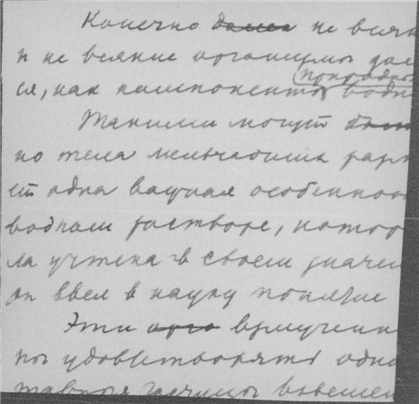 Конечно далек не всяк
и не всякие организмы дол
ся, как компоненты природно водн
Такими могут быть
но тела мельчайших разм
ет одна важная особеннос
водном растворе, котор
ла учтена в своем значен
он ввел в науку понятие
Эти врмученн
ны удовлетворять одно
частицы взвешен